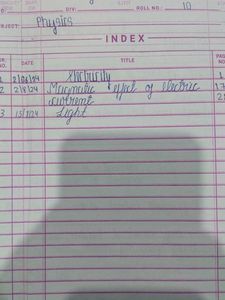 DIV:
ROLL NO.: 10
JECT: Physics
INDEX
NO. DATE TITLE
Electricity 1
2 2/8/24 Magnetic effect of electric 17
current
3 15/8/24 Light